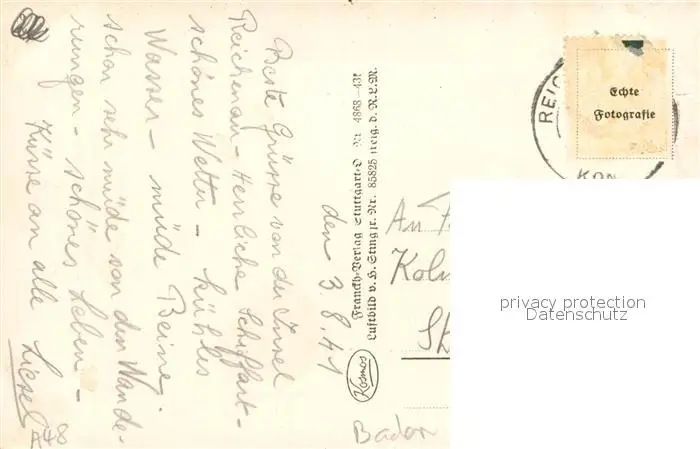 den 3.8.41
Beste Grüsse von der Insel
Reichenau - Herrliche Schiffart -
schönes Wetter - kühles
Wasser - müde Beine.
schon sehr müde von den Wande-
rungen - schönes Leben -
Küsse an alle Liesel
Franckh-Verlag Stuttgart-O
Luftbild v. H. Sting jr. Nr. 85825 freig. d. R.L.M.
Kosmos
An
Baden
REIC
KON
Echte
Fotografie
privacy protection
Datenschutz